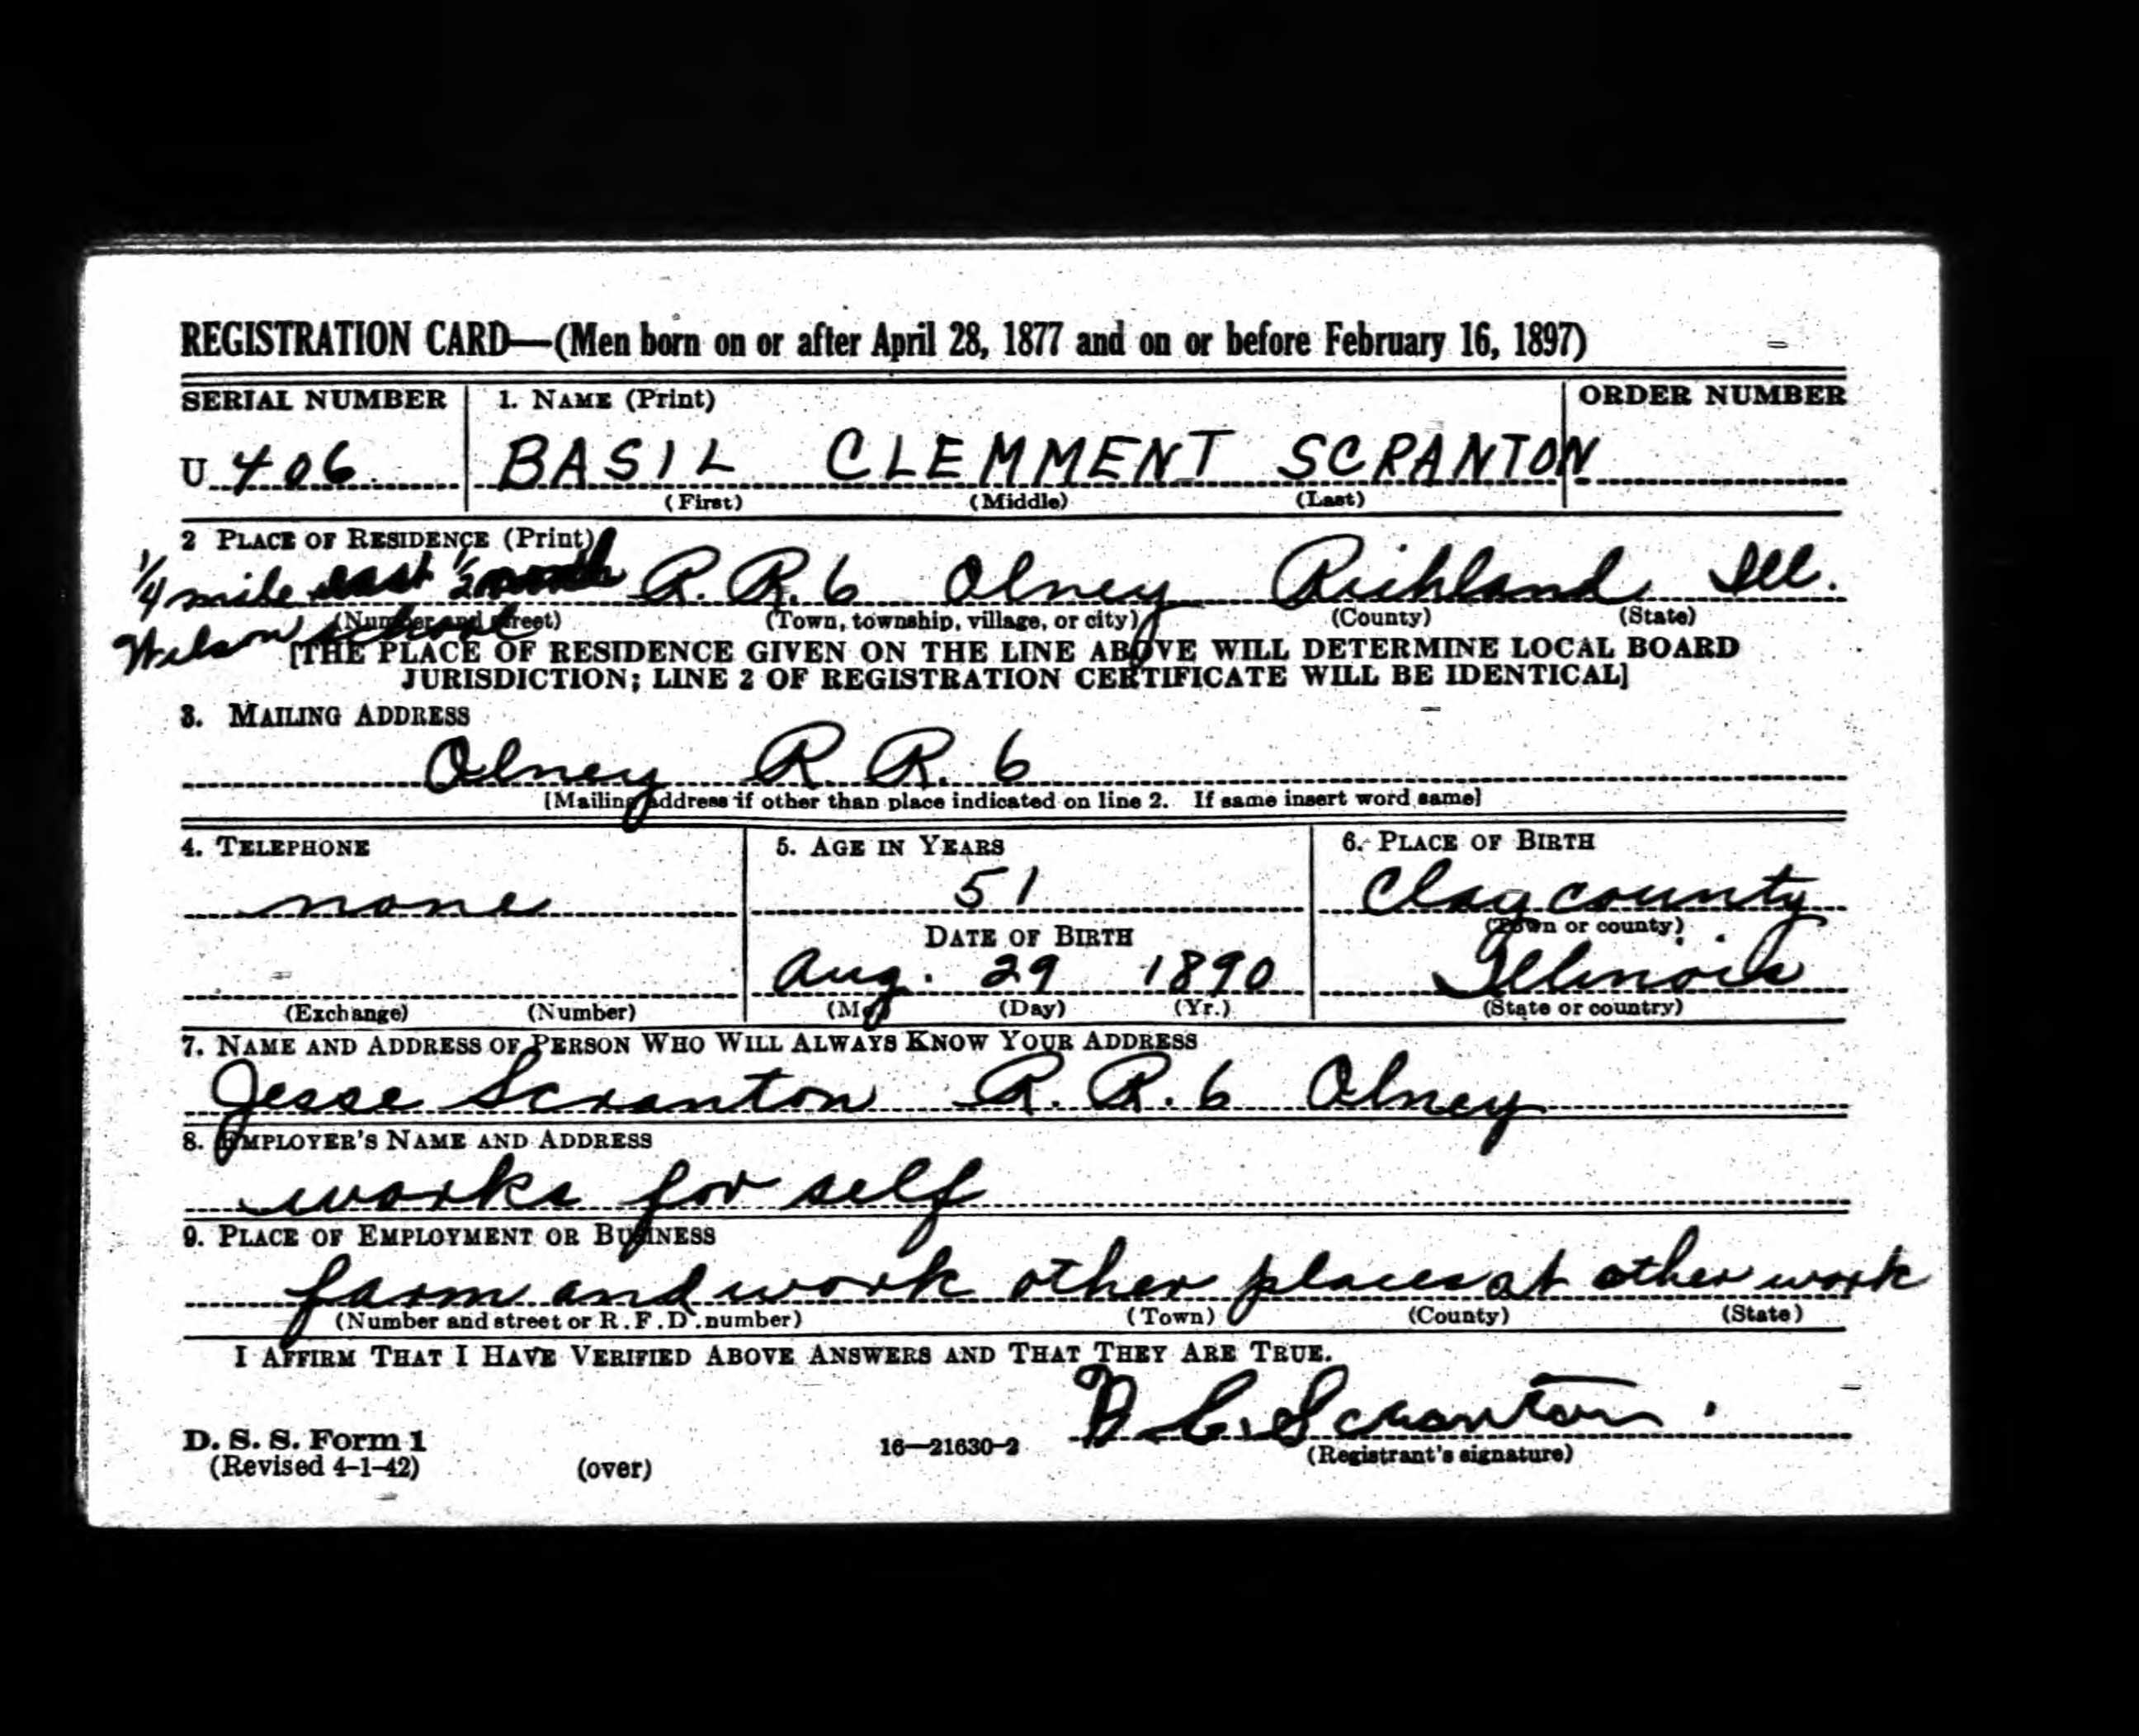 REGISTRATION CARD—(Men born on or after April 28, 1877 and on or before February 16, 1897)
SERIAL NUMBER 1. NAME (Print) ORDER NUMBER
U 406 BASIL CLEMMENT SCRANTON
(First) (Middle) (Last)
2 PLACE OF RESIDENCE (Print)
1/4 mile east 1/2 north R.R. 6 Olney Richland Ill.
(Number and street) (Town, township, village, or city) (County) (State)
Wilson school
[THE PLACE OF RESIDENCE GIVEN ON THE LINE ABOVE WILL DETERMINE LOCAL BOARD
JURISDICTION; LINE 2 OF REGISTRATION CERTIFICATE WILL BE IDENTICAL]
3. MAILING ADDRESS
Olney R. R. 6
[Mailing address if other than place indicated on line 2. If same insert word same]
4. TELEPHONE 5. AGE IN YEARS 6. PLACE OF BIRTH
none 51 Clay county
(Town or county)
DATE OF BIRTH
Aug. 29 1890 Illinois
(Exchange) (Number) (Mo.) (Day) (Yr.) (State or country)
7. NAME AND ADDRESS OF PERSON WHO WILL ALWAYS KNOW YOUR ADDRESS
Jesse Scranton R. R. 6 Olney
8. EMPLOYER'S NAME AND ADDRESS
works for self
9. PLACE OF EMPLOYMENT OR BUSINESS
farm and work other places at other work
(Number and street or R. F. D. number) (Town) (County) (State)
I AFFIRM THAT I HAVE VERIFIED ABOVE ANSWERS AND THAT THEY ARE TRUE.
B. C. Scranton
D. S. S. Form 1 16—21630-2 (Registrant's signature)
(Revised 4-1-42) (over)